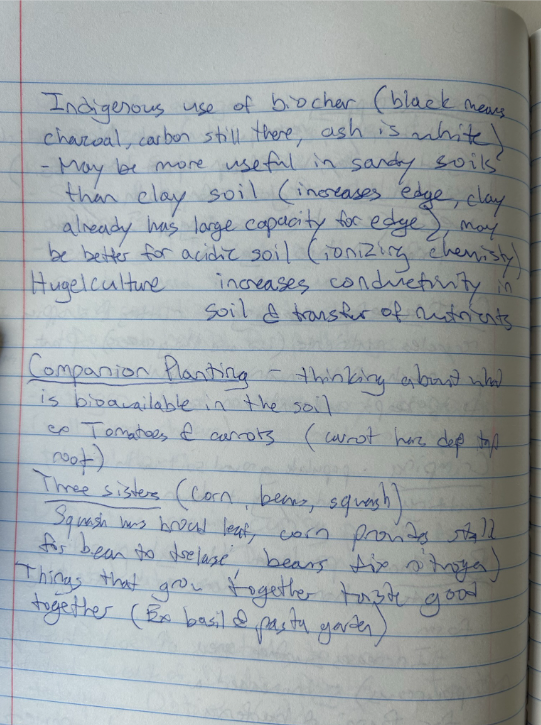 Indigenous use of biochar (black means
charcoal, carbon still there, ash is white)
- May be more useful in sandy soils
than clay soil (increases edge, clay
already has large capacity for edge), may
be better for acidic soil (ionizing chemisty)
Hugelculture increases conductivity in
soil & transfer of nutrients
Companion Planting - thinking about what
is bioavailable in the soil
ex Tomatoes & carrots (carrot have deep tap
root)
Three sisters (corn, beans, squash)
Squash has broad leaf, corn provides stalk
for bean to, beans fix nitrogen)
Things that grow together taste good
together (Ex basil & pasta garden)